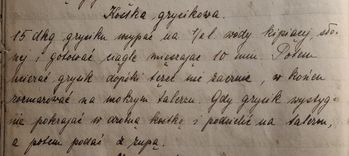 Kostka grysikowa.
15 dkg grysiku wsypać na ¼ l wody kipiącej, sło-
nej i gotować nagle mieszając 10 min. Potem
ucierać grysik dopóki tęręć nie zacznie, w końcu
rozsmarować na mokrym talerzu. Gdy grysik wystyg-
nie pokrajać w drobną kostkę i podzielić na talerze,
a potem podać z zupą.